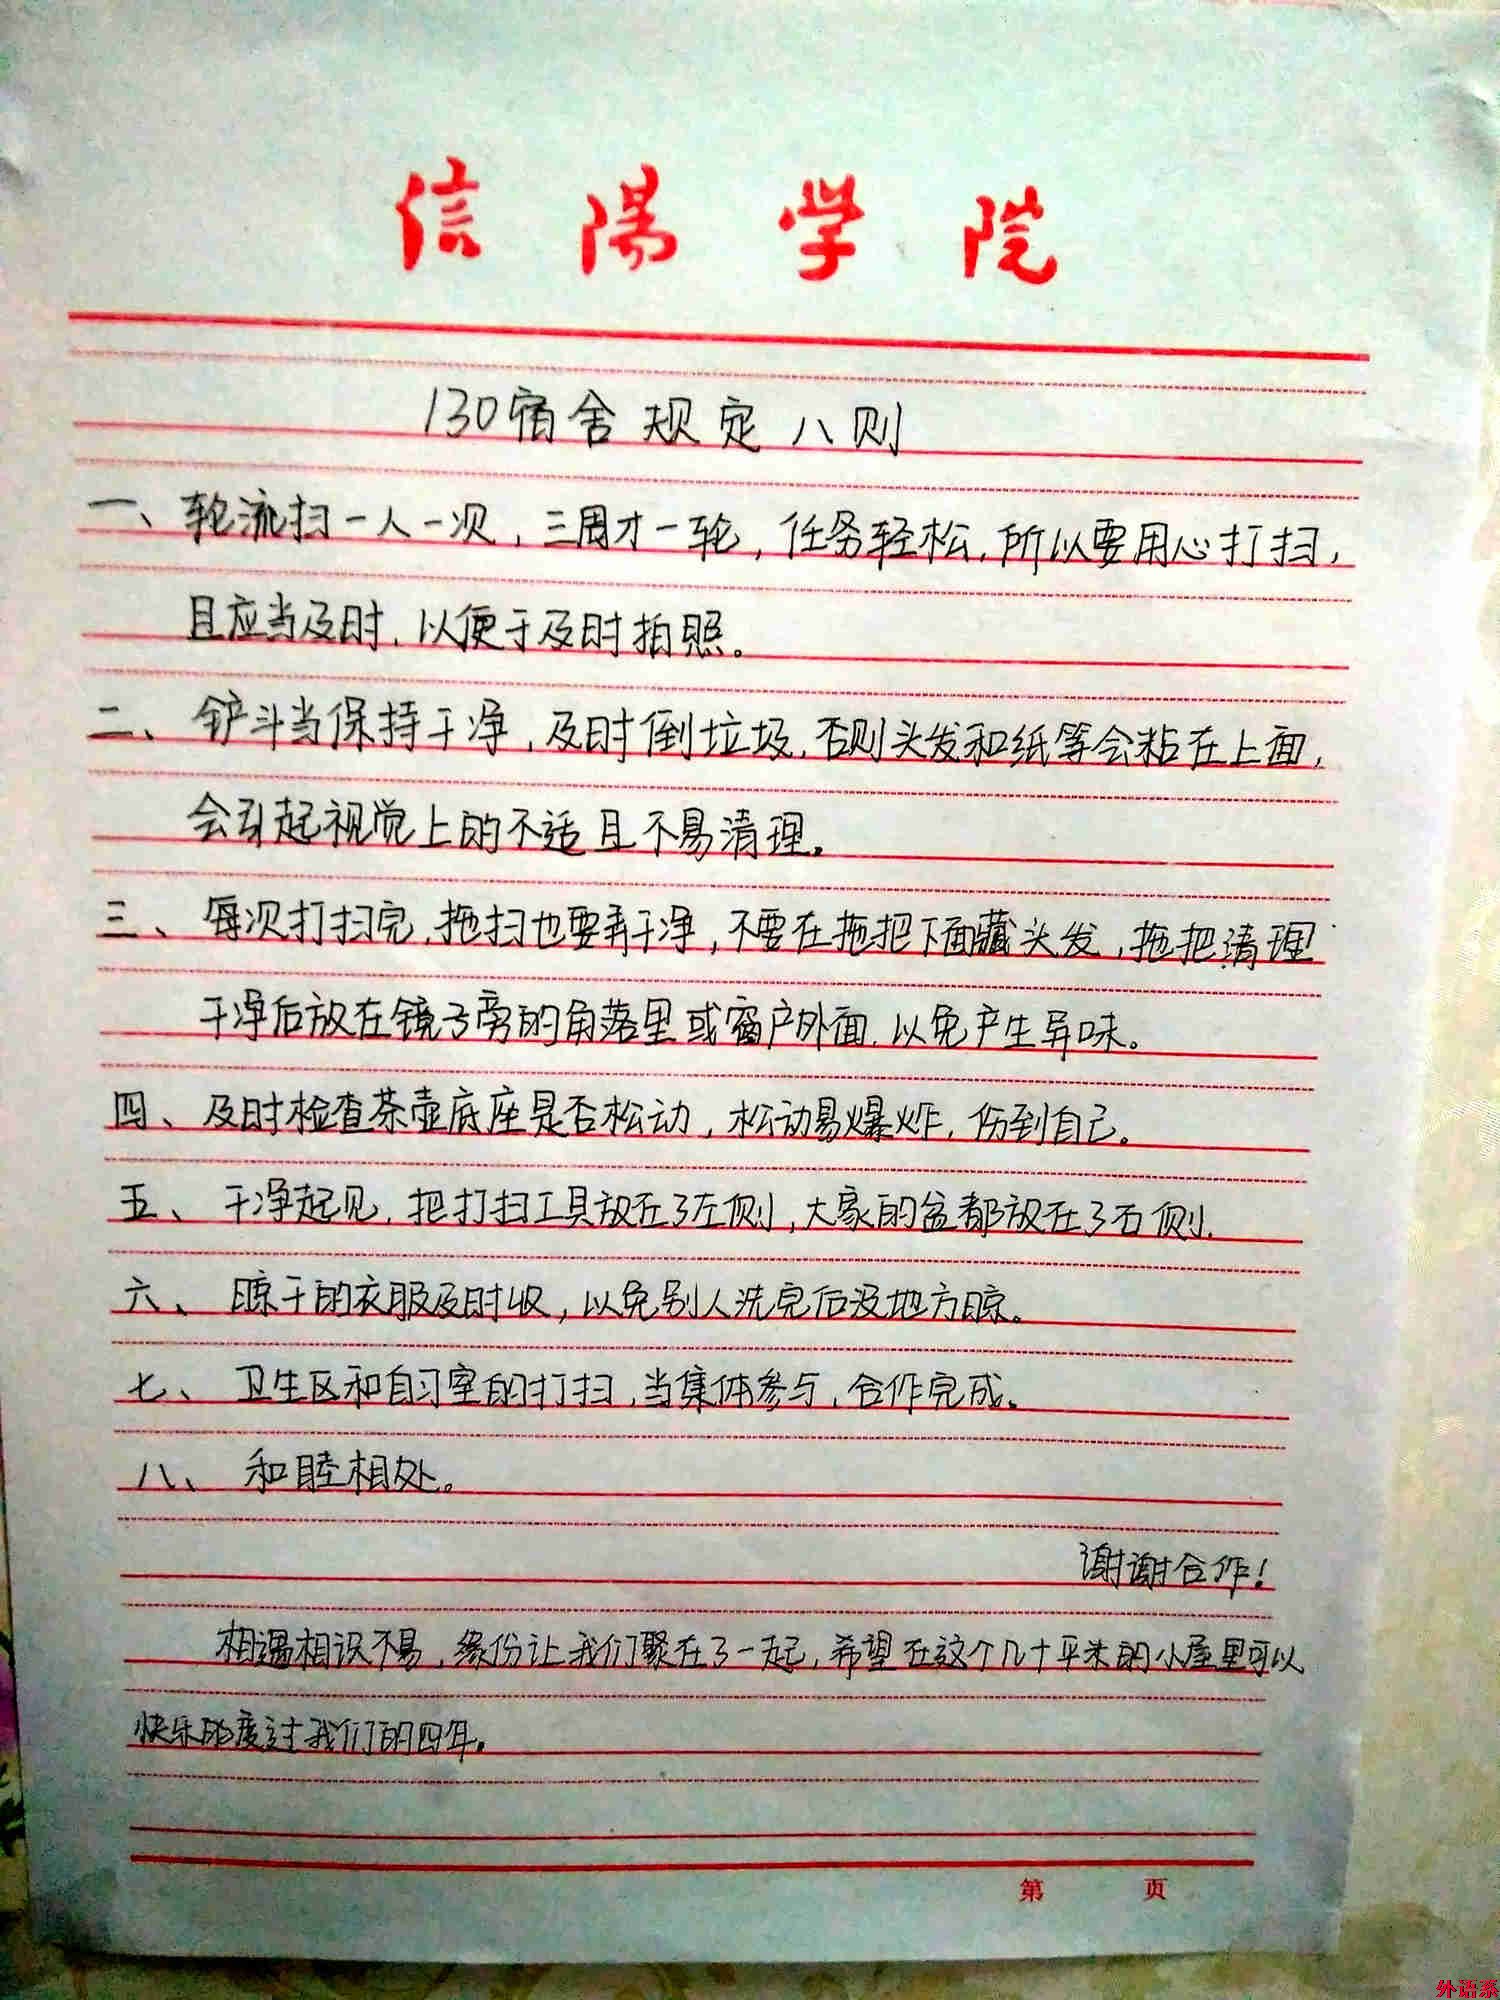 信陽学院
130宿舍规定八则
一、轮流扫一人一次，三周才一轮，任务轻松，所以要用心打扫，
且应当及时，以便于及时拍照。
二、铲斗当保持干净，及时倒垃圾，否则头发和纸等会粘在上面，
会引起视觉上的不适且不易清理。
三、每次打扫完，拖扫也要弄干净，不要在拖把下面藏头发，拖把清理
干净后放在镜子旁的角落里或窗户外面，以免产生异味。
四、及时检查茶壶底座是否松动，松动易爆炸，伤到自己。
五、干净起见，把打扫工具放在了左侧，大家的盆都放在了右侧。
六、晾干的衣服及时收，以免别人洗完后没地方晾。
七、卫生区和自习室的打扫，当集体参与，合作完成。
八、和睦相处。
谢谢合作！
相遇相识不易，缘份让我们聚在了一起，希望在这个几十平米的小屋里可以
快乐的度过我们的四年。
第 页
外语系